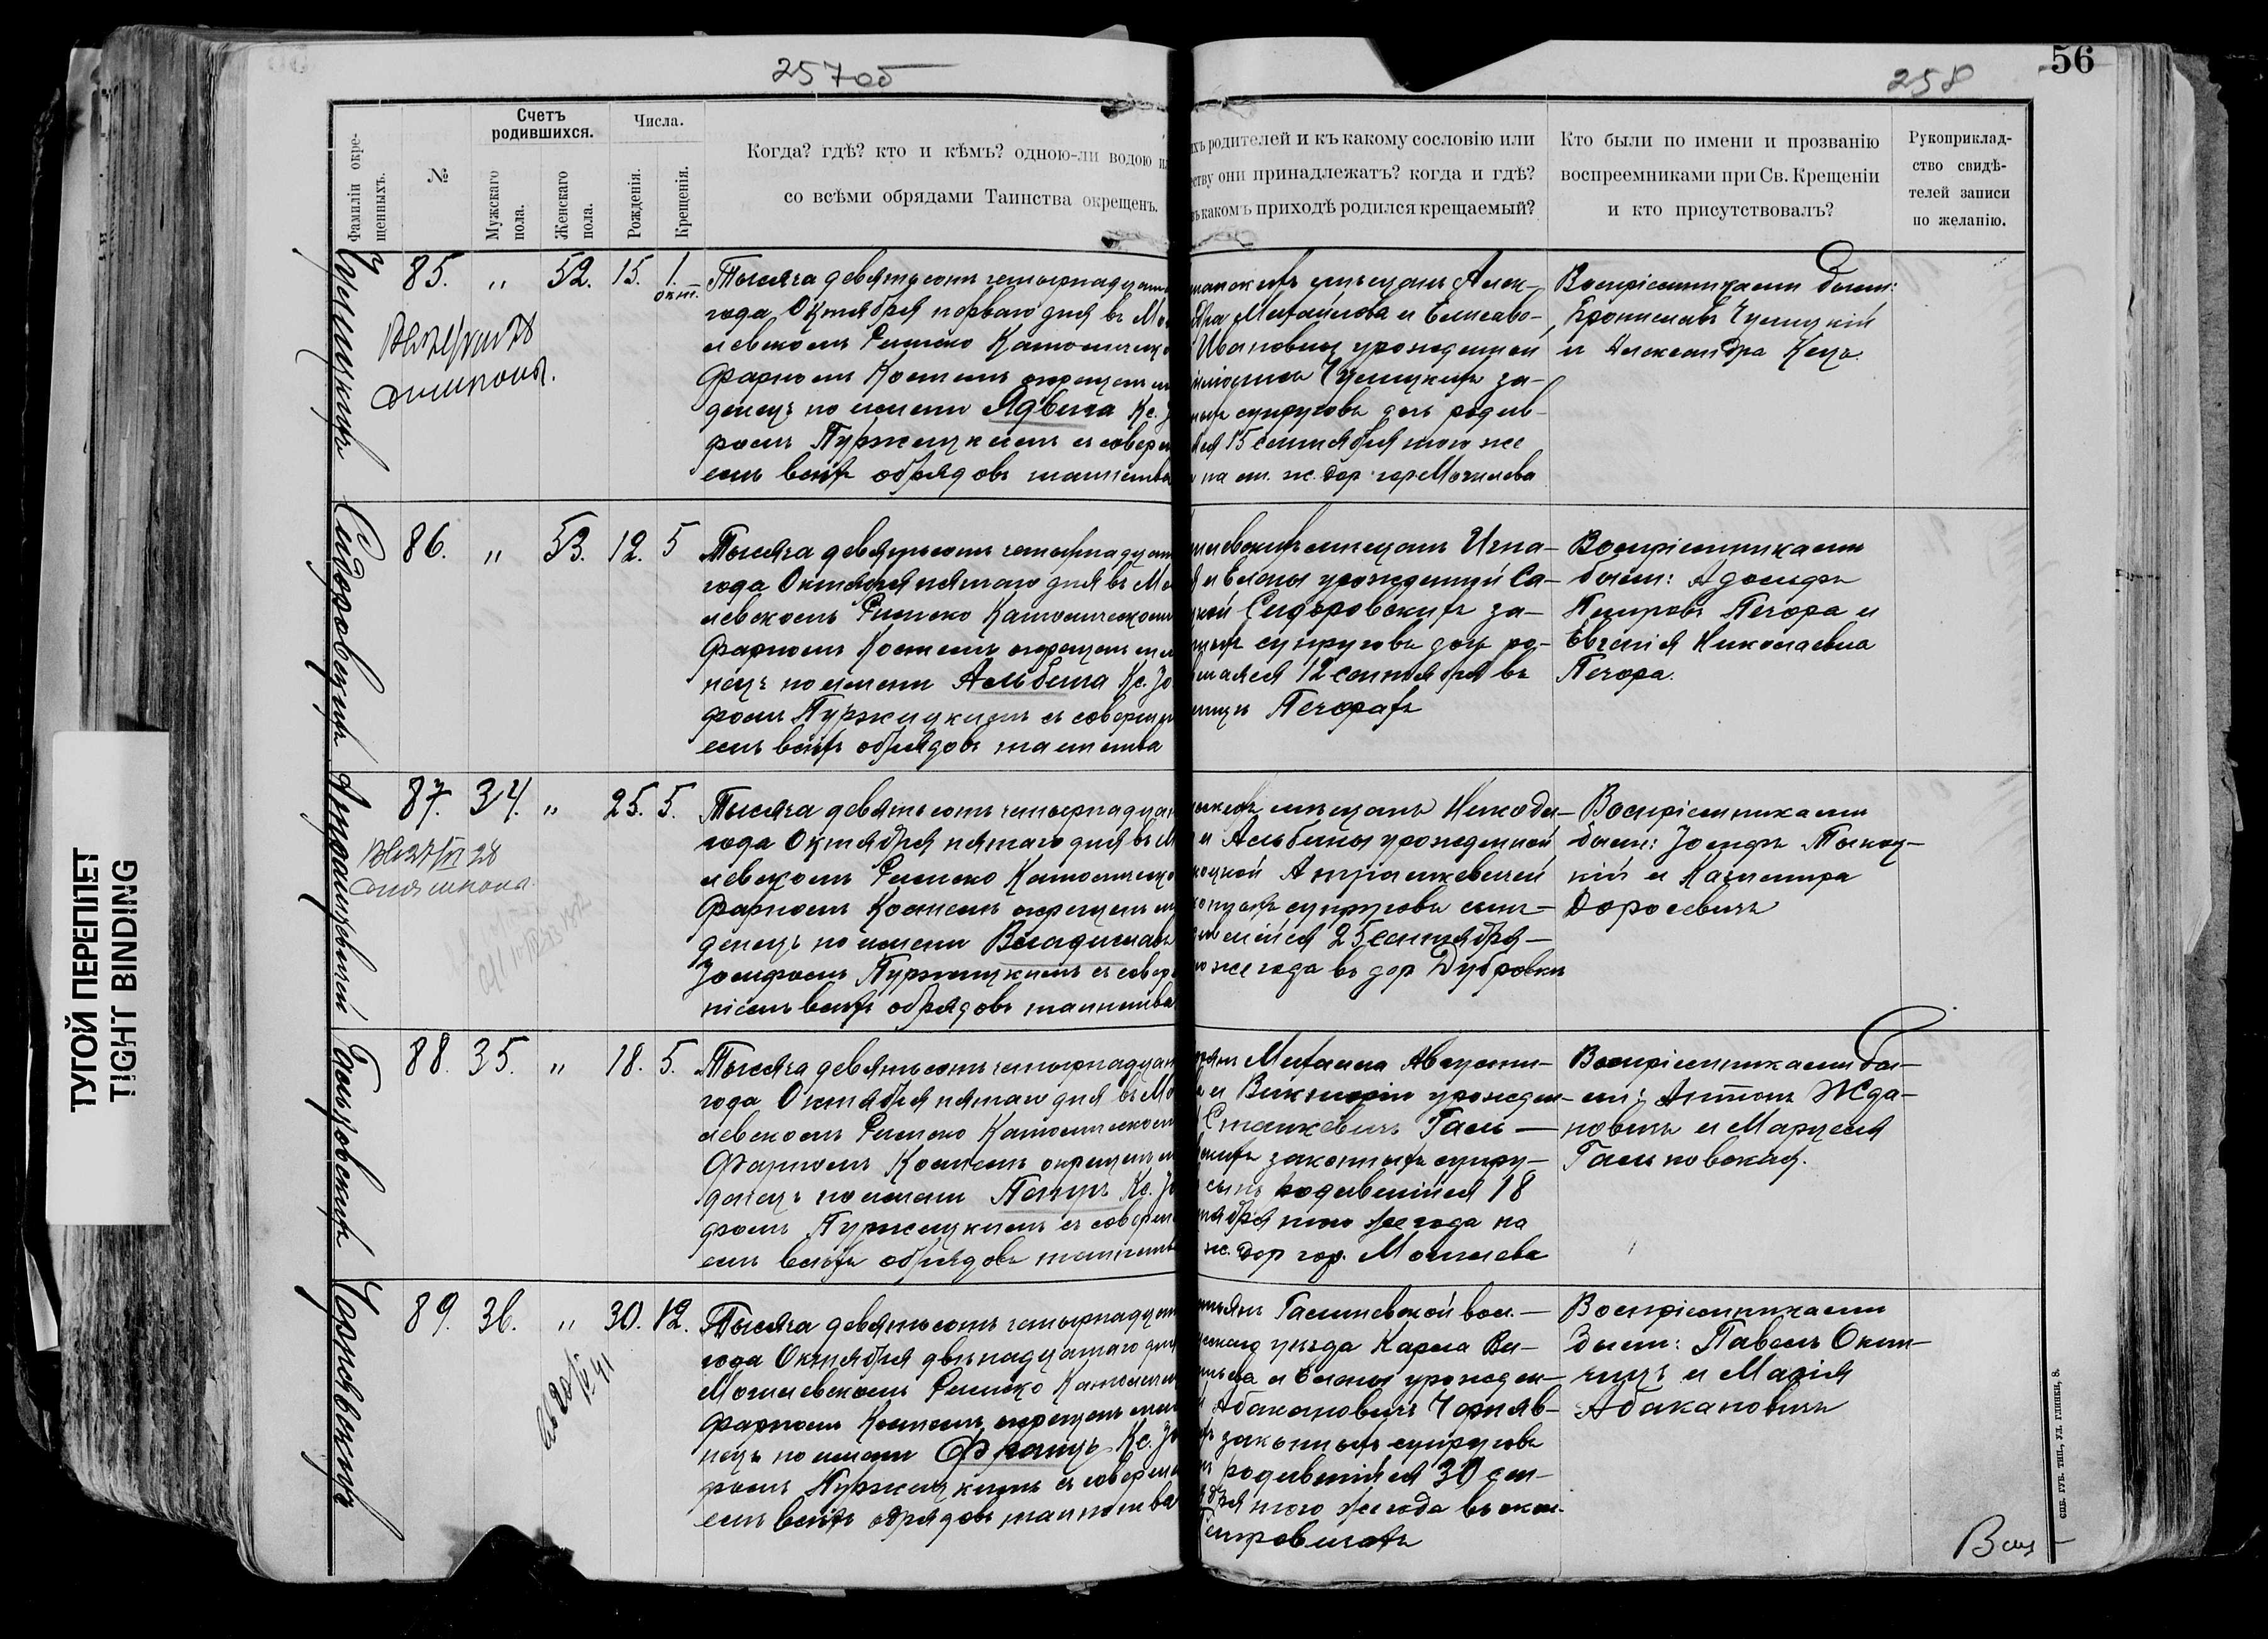 257об
258
56
ТУГОЙ ПЕРЕПЛЕТ
TIGHT BINDING
Фамилiи окре-
щенныхъ.
№
Счетъ
родившихся.
Мужскаго
пола.
Женскаго
пола.
Числа.
Рожденiя.
Крещенiя.
Когда? гдѣ? кто и кѣмъ? одною-ли водою
со всѣми обрядами Таинства окрещенъ.
родителей и къ какому сословiю или
они принадлежатъ? когда и гдѣ?
какомъ приходѣ родился крещаемый?
Кто были по имени и прозванiю
воспреемниками при Св. Крещенiи
и кто присутствовалъ?
Рукоприклад-
ство свидѣ-
телей записи
по желанiю.
85. " 52. 15. 1.
окт.
Тысяча девятьсотъ четырнадцат
года Октября перваго дня въ Мо
левскомъ Римско Католическо
Фарномъ Костелѣ окрещенъ мла
денецъ по имени Ядвига Кс. Jо
фомъ Пуржицкимъ съ соверш
емъ всѣхъ обрядовъ таинства
мѣщанъ Алек-
дра Михайлова и Елисаве-
Ивановны урожденной
Чулицкихъ за-
ныхъ супруговъ дочь родив-
15 сентября того же
на ст. ж. дор. гор. Могилева
Воспрiемниками были:
Брониславъ Чулицкiй
и Александра Куль.
Сидоровскихъ
86. " 53. 12. 5
Тысяча девятьсотъ четырнадцат
года Октября пятаго дня въ Мо
левскомъ Римско Католическомъ
Фарномъ Костелѣ окрещенъ мла
нецъ по имени Альбина Кс. Jо
фомъ Пуржицкимъ съ соверше
емъ всѣхъ обрядовъ таинства
левскихъ мѣщанъ Игна-
и Елены урожденной Са-
Сидоровскихъ за-
ныхъ супруговъ дочь ро-
шаяся 12 сентября въ
Печорахъ
Воспрiемниками
были: Адольфъ
Петровъ Печора и
Евгенiя Николаевна
Печора.
87. 34. " 25. 5.
Тысяча девятьсотъ четырнадцат
года Октября пятаго дня въ М
левскомъ Римско Католическо
Фарномъ Костелѣ окрещенъ мла
денецъ по имени Владиславъ
Jосифомъ Пуржицкимъ съ совер
нiемъ всѣхъ обрядовъ таинства
мѣщанъ Никоди-
и Альбины урожденной
супруговъ сынъ
25 сентября
же года въ дер Дубровки
Воспрiемниками
были: Jосифъ Тыниц-
кiй и Казимира
Доросевичъ
Гальковскихъ
88. 35. " 18. 5.
Тысяча девятьсотъ четырнадцат
года Октября пятаго дня въ Мо
левскомъ Римско Католическомъ
Фарномъ Костелѣ окрещенъ мла
денецъ по имени Петръ Кс. Jо
фомъ Пуржицкимъ съ соверше
емъ всѣхъ обрядовъ таинства
Михаила Августи-
и Викторiи урожден-
Станкевичъ Галь-
законныхъ супру-
сынъ родившiйся 18
тября того же года на
ж. дор гор. Могилева
Воспрiемниками бы-
ли: Антонъ Жда-
новичъ и Марцеля
Гальковская.
Чернявскихъ
89. 36. " 30. 12.
Тысяча девятьсотъ четырнадцат
года Октября двѣнадцатаго дня
Могилевскомъ Римско Католиче
Фарномъ Костелѣ окрещенъ мла
нецъ по имени Францъ Кс. Jо
фомъ Пуржицкимъ съ соверше
емъ всѣхъ обрядовъ таинства
вол.
уѣзда Карла Ви-
и Елены урожден-
Абакановичъ Черняв-
законныхъ супруговъ
родившiйся 30 сен-
бря того же года въ окол.
Воспрiемниками
были: Павелъ Окин-
чицъ и Марiя
Абакановичъ
СПБ. ГУБ. ТИП., УЛ. ГЛИНКИ, 8.